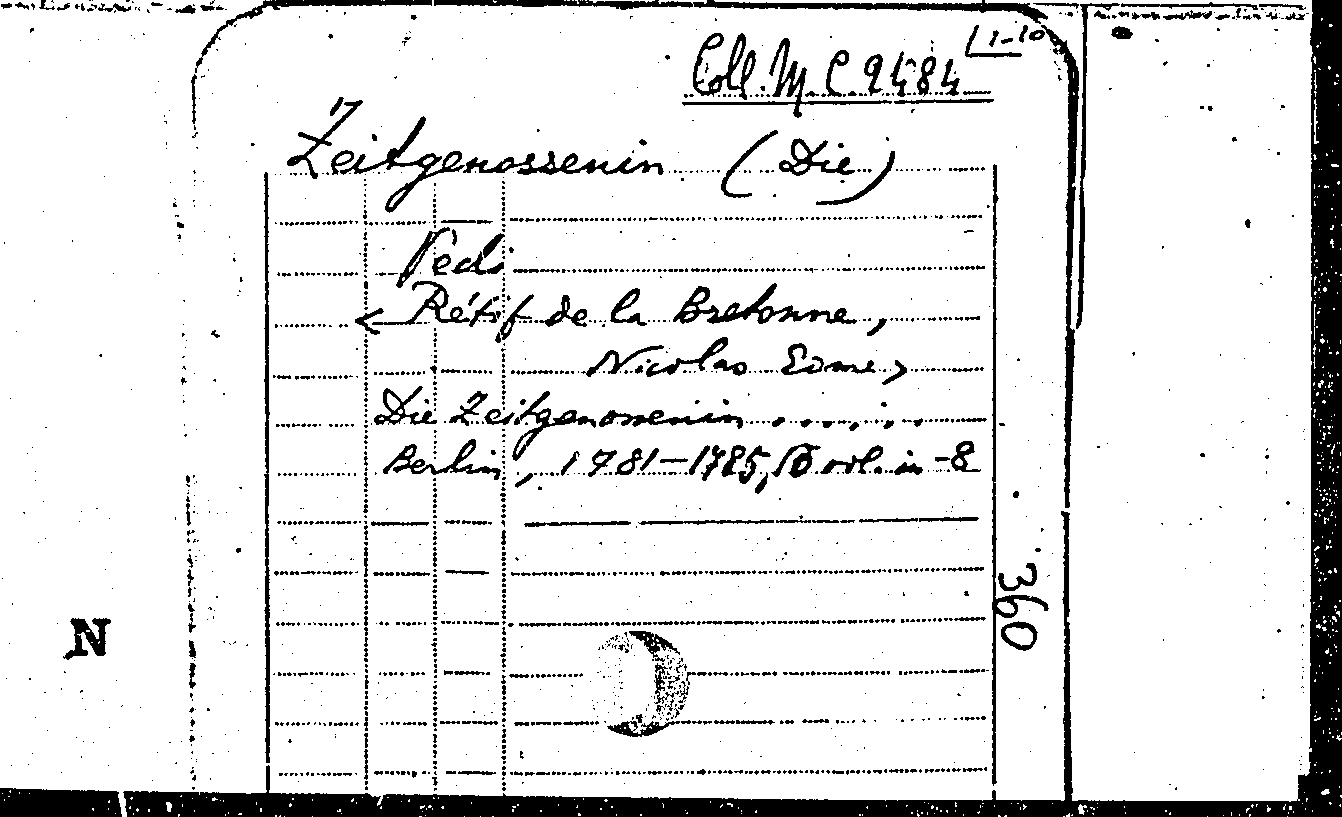 Coll. M. C. 2484 / 1-10
Zeitgenossenin (Die)
Ved.
< Rétif de la Bretonne,
Nicolas Edme >
Die Zeitgenossenin . . . . . .
Berlin, 1781-1785, 10 vol. in-8
360
N